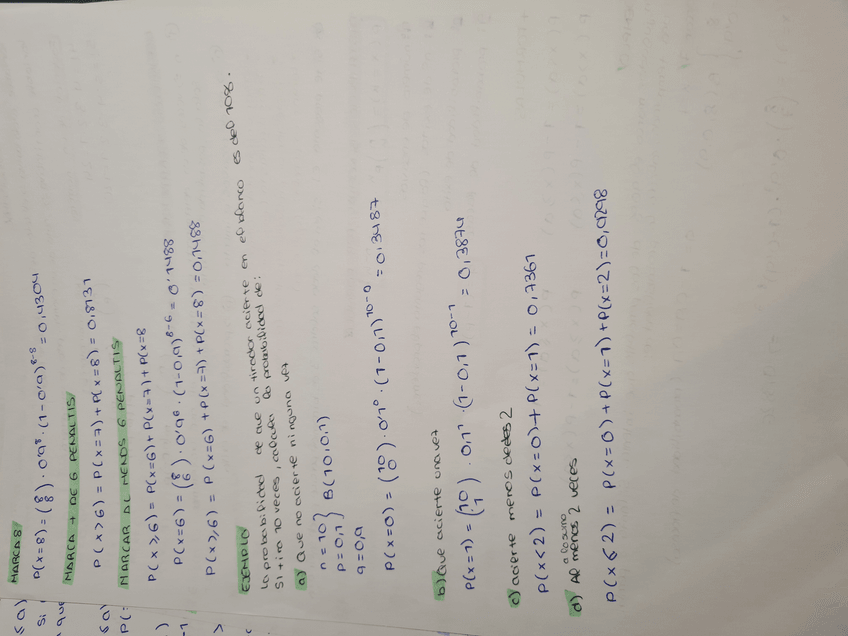 MARCA 8
P(x=8) = (8 8) · 0'9⁸ · (1-0'9)⁸⁻⁸ = 0,4304
MARCA + DE 6 PENALTIS
P(x>6) = P(x=7) + P(x=8) = 0,8131
MARCAR AL MENOS 6 PENALTIS
P(x≥6) = P(x=6) + P(x=7) + P(x=8
P(x=6) = (8 6) · 0'9⁶ · (1-0,9)⁸⁻⁶ = 0'1488
P(x≥6) = P(x=6) + P(x=7) + P(x=8) = 0,1488
EJEMPLO
La probabilidad de que un tirador acierte en el blanco es del 10%.
Si tira 10 veces, calcula la probabilidad de:
a) Que no acierte ninguna vez
n=10 } B(10,0,1)
p=0,1
q=0,9
P(x=0) = (10 0) · 0'1⁰ · (1-0,1)¹⁰⁻⁰ = 0,3487
b) Que acierte una vez
P(x=1) = (10 1) · 0,1¹ · (1-0,1)¹⁰⁻¹ = 0,3874
c) acierte menos de 2
P(x<2) = P(x=0) + P(x=1) = 0,7361
a lo sumo
d) Al menos 2 veces
P(x≤2) = P(x=0) + P(x=1) + P(x=2) = 0,9298